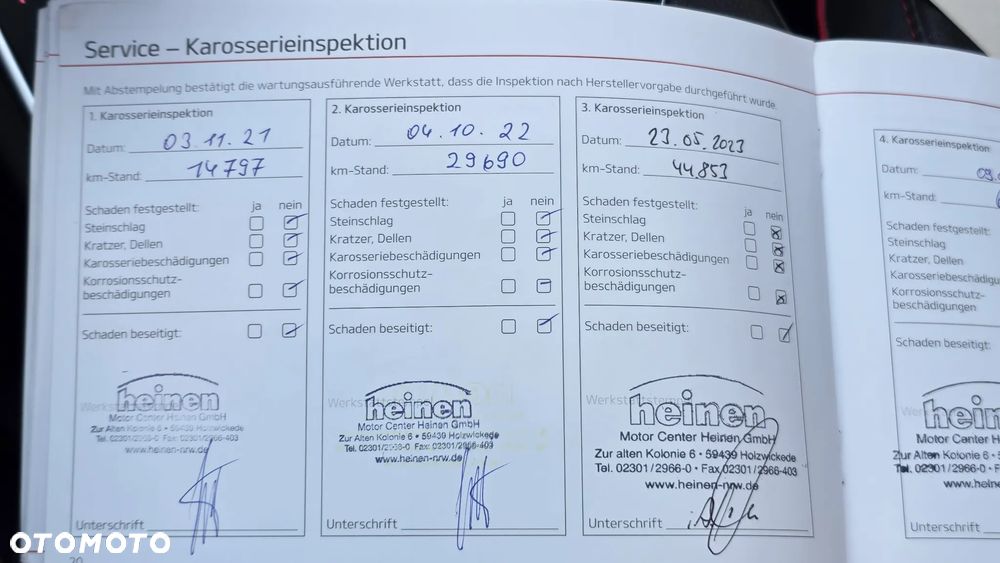 Service – Karosserieinspektion
Mit Abstempelung bestätigt die wartungsausführende Werkstatt, dass die Inspektion nach Herstellervorgabe durchgeführt wurde.
1. Karosserieinspektion
Datum: 03.11.21
km-Stand: 14797
Schaden festgestellt: ja nein
Steinschlag
Kratzer, Dellen
Karosseriebeschädigungen
Korrosionsschutz-
beschädigungen
Schaden beseitigt:
heinen
Motor Center Heinen GmbH
Zur Alten Kolonie 6 • 59439 Holzwickede
Tel. 02301/2966-0 Fax: 02301/2966-403
www.heinen-nrw.de
Unterschrift
2. Karosserieinspektion
Datum: 04.10.22
km-Stand: 29690
Schaden festgestellt: ja nein
Steinschlag
Kratzer, Dellen
Karosseriebeschädigungen
Korrosionsschutz-
beschädigungen
Schaden beseitigt:
heinen
Motor Center Heinen GmbH
Zur Alten Kolonie 6 • 59439 Holzwickede
Tel. 02301/2966-0 Fax: 02301/2966-403
www.heinen-nrw.de
Unterschrift
3. Karosserieinspektion
Datum: 23.05.2023
km-Stand: 44.853
Schaden festgestellt: ja nein
Steinschlag
Kratzer, Dellen
Karosseriebeschädigungen
Korrosionsschutz-
beschädigungen
Schaden beseitigt:
Werkstattstempel
heinen
Motor Center Heinen GmbH
Zur alten Kolonie 6 • 59439 Holzwickede
Tel. 02301/2966-0 • Fax 02301/2966-403
www.heinen-nrw.de
Unterschrift
4. Karosserieinspektion
Datum:
km-Stand:
Schaden festgestellt:
Steinschlag
Kratzer, Dellen
Karosseriebeschädigu
Korrosionsschutz-
beschädigungen
Schaden beseitigt:
hein
Motor Center H
Zur Alten Kolonie 6 •
Tel. 02301/2966-0
www.hein
Unterschrift
20
OTOMOTO